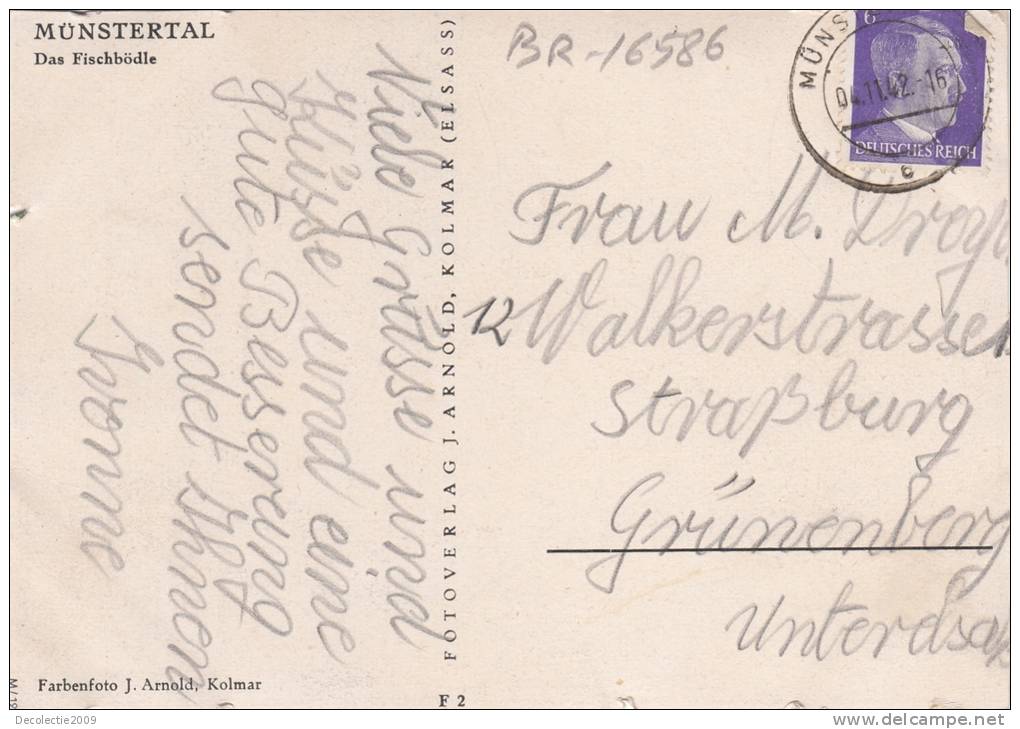 MÜNSTERTAL
Das Fischbödle
BR-16586
6
MÜNS
04.11.42.-16
DEUTSCHES REICH
c
Viele Grüsse und
Küsse und eine
gute Besserung
sendet Ihnen
Ivonne
FOTOVERLAG J. ARNOLD, KOLMAR (ELSASS)
Frau M.
12 Walkerstrasse
Straßburg
Grünenberg
Unterelsaß
Farbenfoto J. Arnold, Kolmar
F 2
Decolectie2009
www.delcampe.net